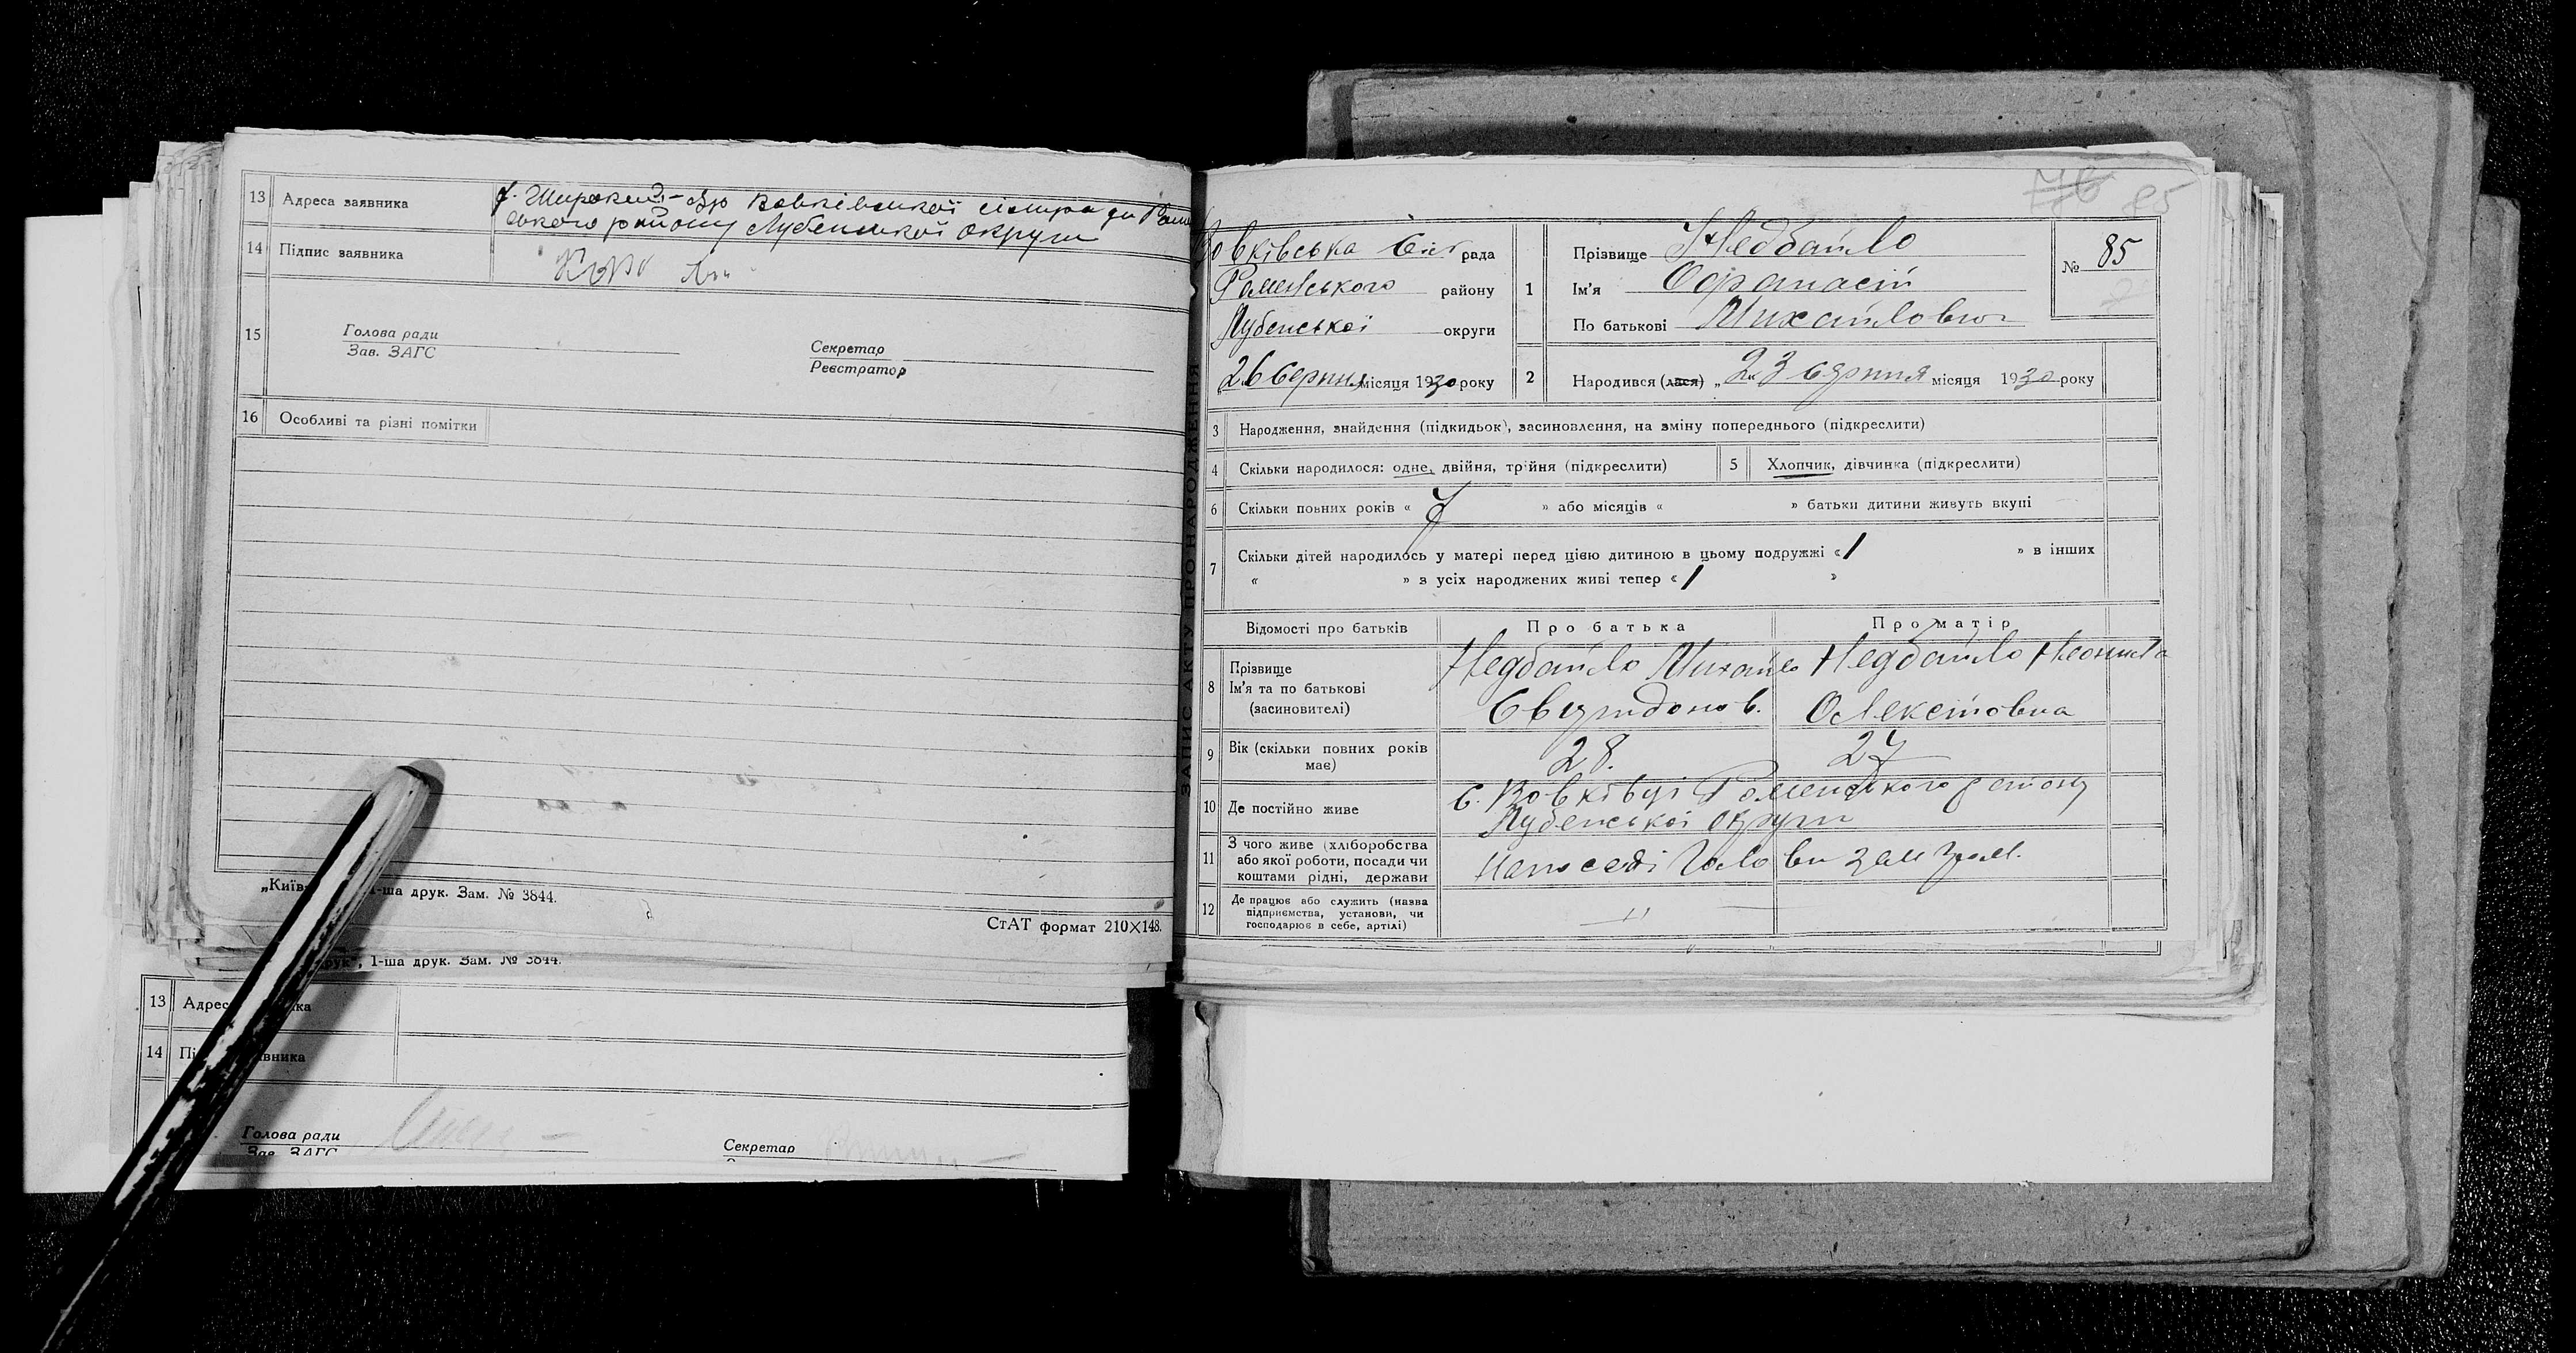 13 Адреса заявника
х. Широкий-Яр Вовківської сільради Ромен
ського району Лубенської округи
14 Підпис заявника
15
Голова ради
Зав. ЗАГС
Секретар
Реєстратор
16 Особливі та різні помітки
1-ша друк. Зам. № 3844.
СтАТ формат 210X148.
1-ша друк. Зам. № 3844.
13
14
Голова ради
Зав. ЗАГС
Секретар
ЗАПИС АКТУ ПРО НАРОДЖЕННЯ
76 85
Вовківська сіл рада
Роменського району
Лубенської округи
26 Серпня місяця 1930 року
1 Прізвище Недбайло
Ім'я Офанасій
По батькові Михайлович
№ 85
2 Народився (лася) „23" серпня місяця 1930 року
3 Народження, знайдення (підкидьок), засиновлення, на зміну попереднього (підкреслити)
4 Скільки народилося: одне, двійня, трійня (підкреслити) 5 Хлопчик, дівчинка (підкреслити)
6 Скільки повних років « 7 » або місяців « » батьки дитини живуть вкупі
7 Скільки дітей народилось у матері перед цією дитиною в цьому подружжі « 1 » в інших
« » з усіх народжених живі тепер « 1 »
Відомості про батьків Про батька Про матір
8 Прізвище
Ім'я та по батькові
(засиновителі)
Недбайло Михайло
Недбайло Неоніла
Олексіовна
9 Вік (скільки повних років має) 28. 27
10 Де постійно живе с. Вовківці Роменського району
Лубенської округи
11 З чого живе (хліборобства
або якої роботи, посади чи
коштами рідні, держави
На посаді Голови
12 Де працює або служить (назва
підприємства, установи, чи
господарює в себе, артілі)
—〃—